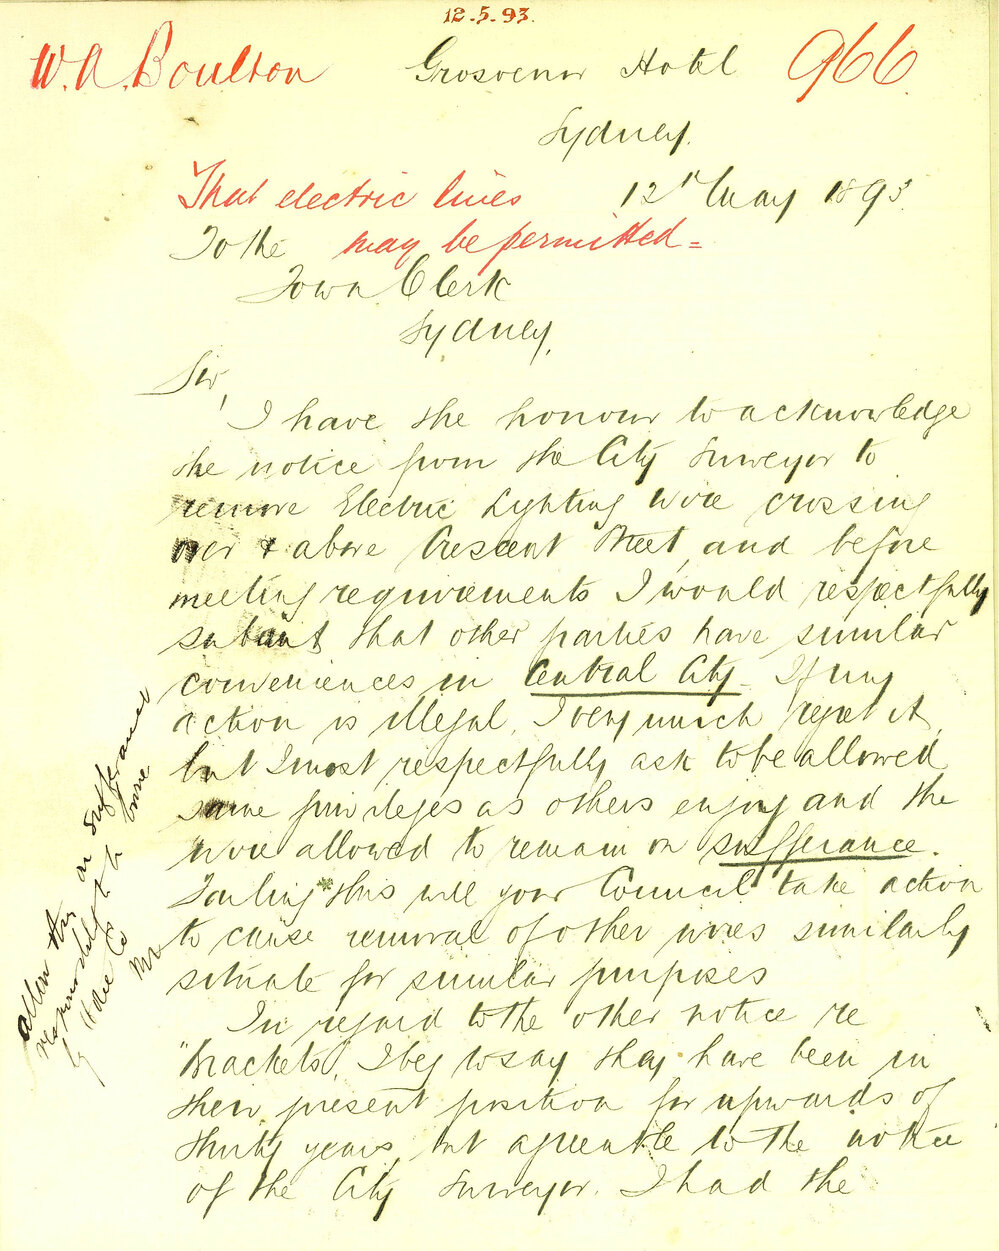 12.5.93.
W.A. Boulton Grosvenor Hotel 966.
Sydney.
That electric lines 12th May 1893.
To the may be permitted =
Town Clerk
Sydney.
Sir,
I have the honour to acknowledge
the notice from the City Surveyor to
remove Electric Lighting wire crossing
over & above Crescent Street, and before
meeting requirements I would respectfully
submit that other parties have similar
conveniences in Central City. If my
action is illegal, I very much regret it,
but I most respectfully ask to be allowed
same privileges as others enjoy and the
wire allowed to remain on sufferance.
Failing this will your Council take action
to cause removal of other wires similarly
situate for similar purposes
In regard to the other notice re
"Brackets", I beg to say they have been in
their present position for upwards of
thirty years, but agreeable to the notice
of the City Surveyor. I had the
allow this on sufferance
responsibility to be borne
by